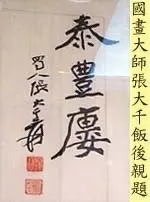 國畫大師張大千飯後親題
泰豐廔
蜀人張大千爰